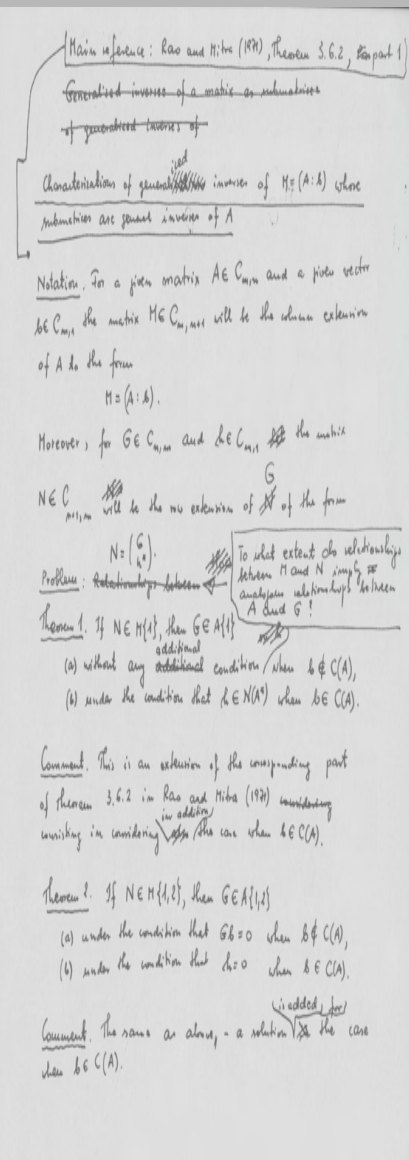 Main reference: Rao and Mitra (1971), Theorem 3.6.2, part 1
Generalized inverses of a matrix as submatrices
of generalized inverses of
Characterizations of generalized inverses of M=(A:b) whose
submatrices are general inverses of A
Notation. For a given matrix A∈C_{m,n} and a given vector
b∈C_{m,1} the matrix M∈C_{m,n+1} will be the column extension
of A to the form
M=(A:b).
Moreover, for G∈C_{n,m} and h∈C_{m,1} the matrix
N∈C_{n+1,m} will be the row extension of G of the form
N=(G
h*).
Problem: Relationships between
To what extent do relationships
between M and N imply
analogous relationships between
A and G!
Theorem 1. If N∈M{1}, then G∈A{1}
(a) without any additional condition when b∉C(A),
(b) under the condition that h∈N(A*) when b∈C(A).
Comment. This is an extension of the corresponding part
of Theorem 3.6.2 in Rao and Mitra (1971) considering
consisting in considering in addition the case when b∈C(A).
Theorem 2. If N∈M{1,2}, then G∈A{1,2}
(a) under the condition that Gb=0 when b∉C(A),
(b) under the condition that h=0 when b∈C(A).
Comment. The same as above, - a solution is added for the case
when b∈C(A).